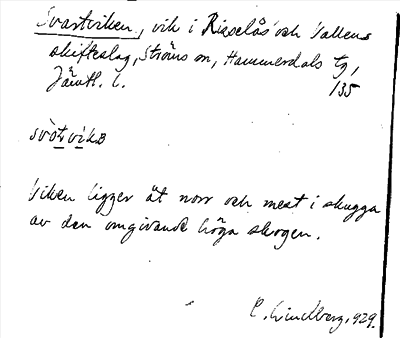 Svartviken, vik i Risselås och Vallens
skifteslag, Ströms sn, Hammerdals tg,
Jämtl. l. 135
svòtvìkɐ
Viken ligger åt norr och mest i skugga
av den omgivande höga skogen.
C. Lindberg, 929.